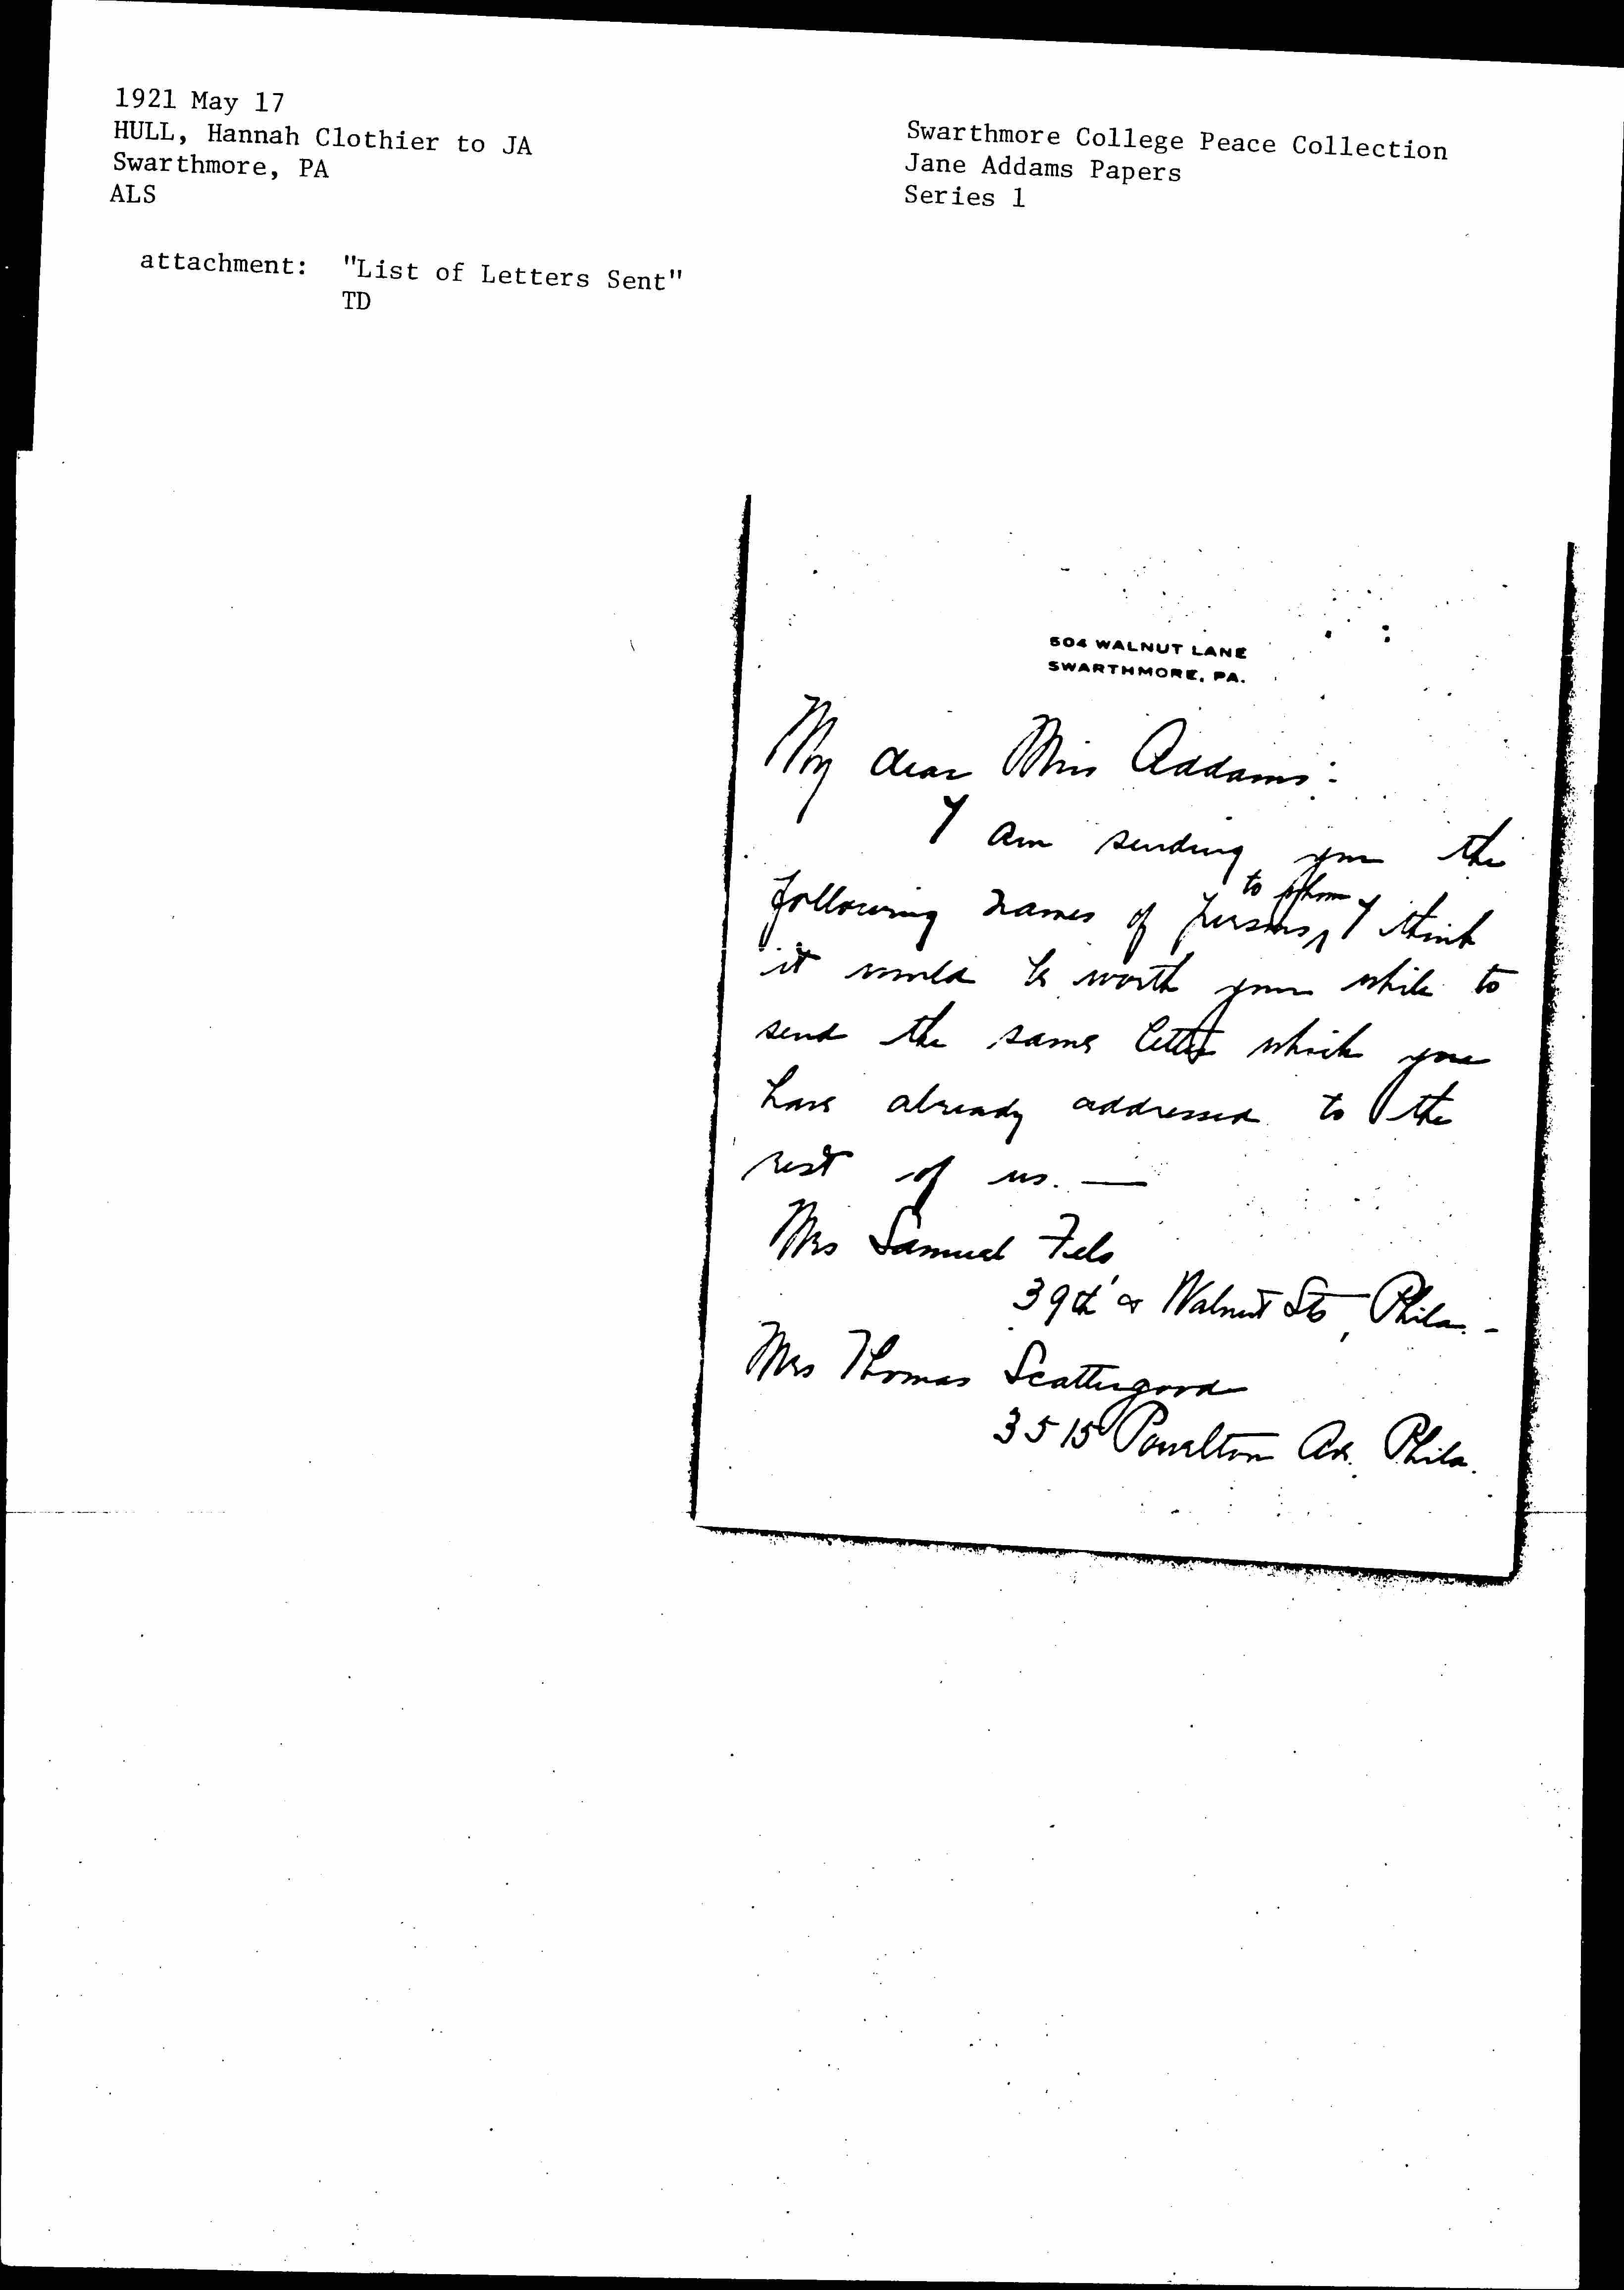 1921 May 17
HULL, Hannah Clothier to JA
Swarthmore, PA
ALS
attachment: "List of Letters Sent"
TD
Swarthmore College Peace Collection
Jane Addams Papers
Series 1
504 WALNUT LANE
SWARTHMORE, PA.
My dear Miss Addams:
I am sending you the
to whom
following names of persons ‸ I think
it would be worth your while to
send the same letter which you
have already addressed to the
rest of us. —
Mrs Samuel Fels
39th & Walnut Sts, Phila. -
Mrs Thomas Scattergood
3515 Powelton Av. Phila.